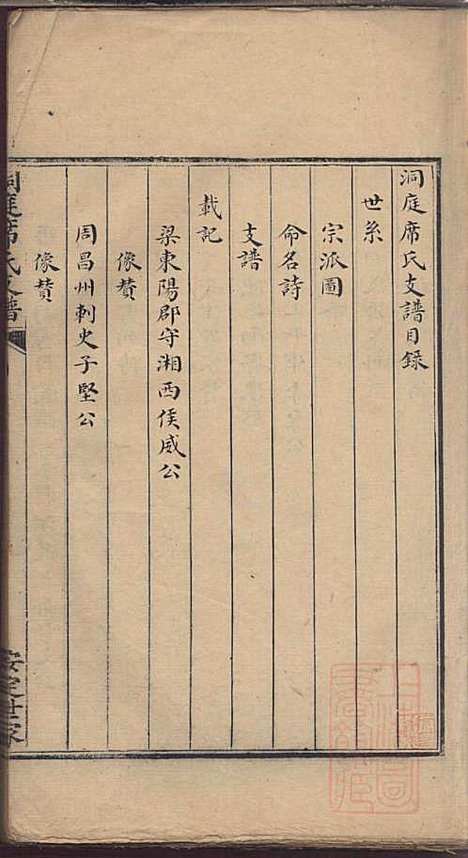 洞庭席氏支譜目錄
世系
宗派圖
命名詩
支譜
載記
梁東陽郡守湘西侯威公
像贊
周昌州刺史子堅公
像贊
洞庭席氏支譜
安定世家